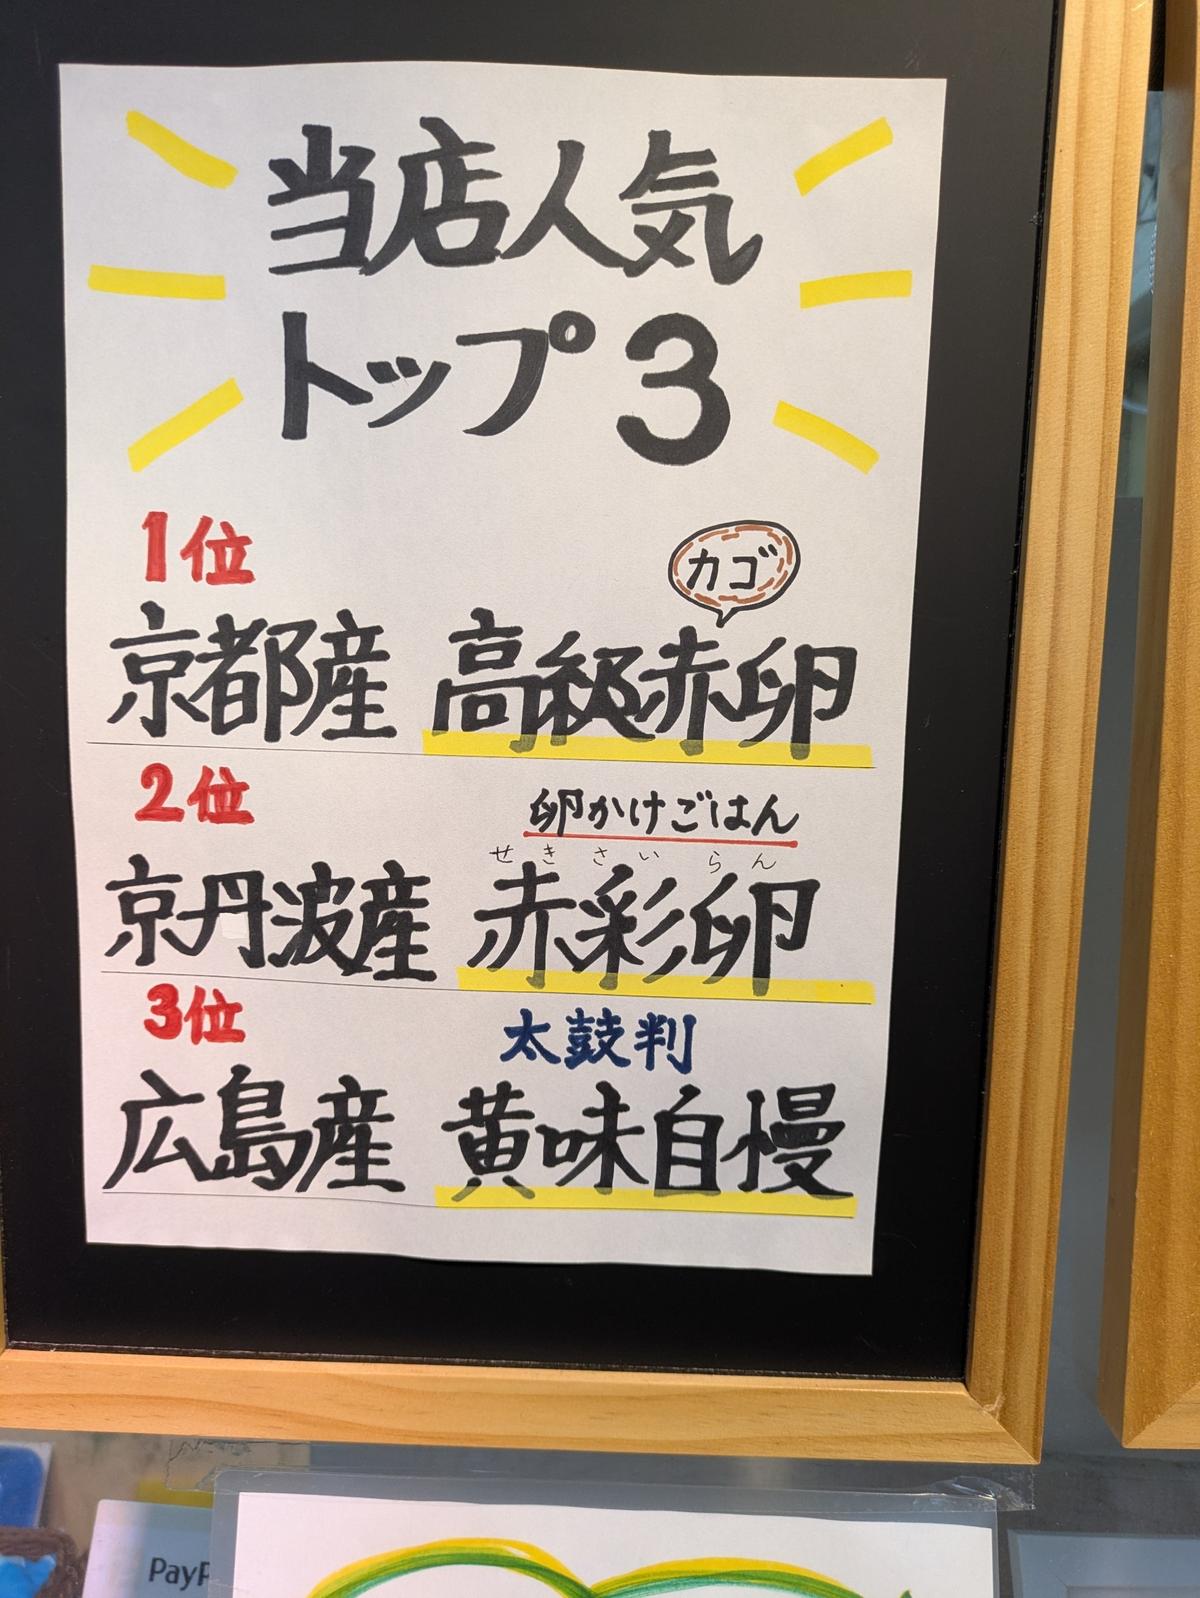 当店人気
トップ3
1位
カゴ
京都産 高級赤卵
2位
卵かけごはん
せきさいらん
京丹波産 赤彩卵
3位
太鼓判
広島産 黄味自慢